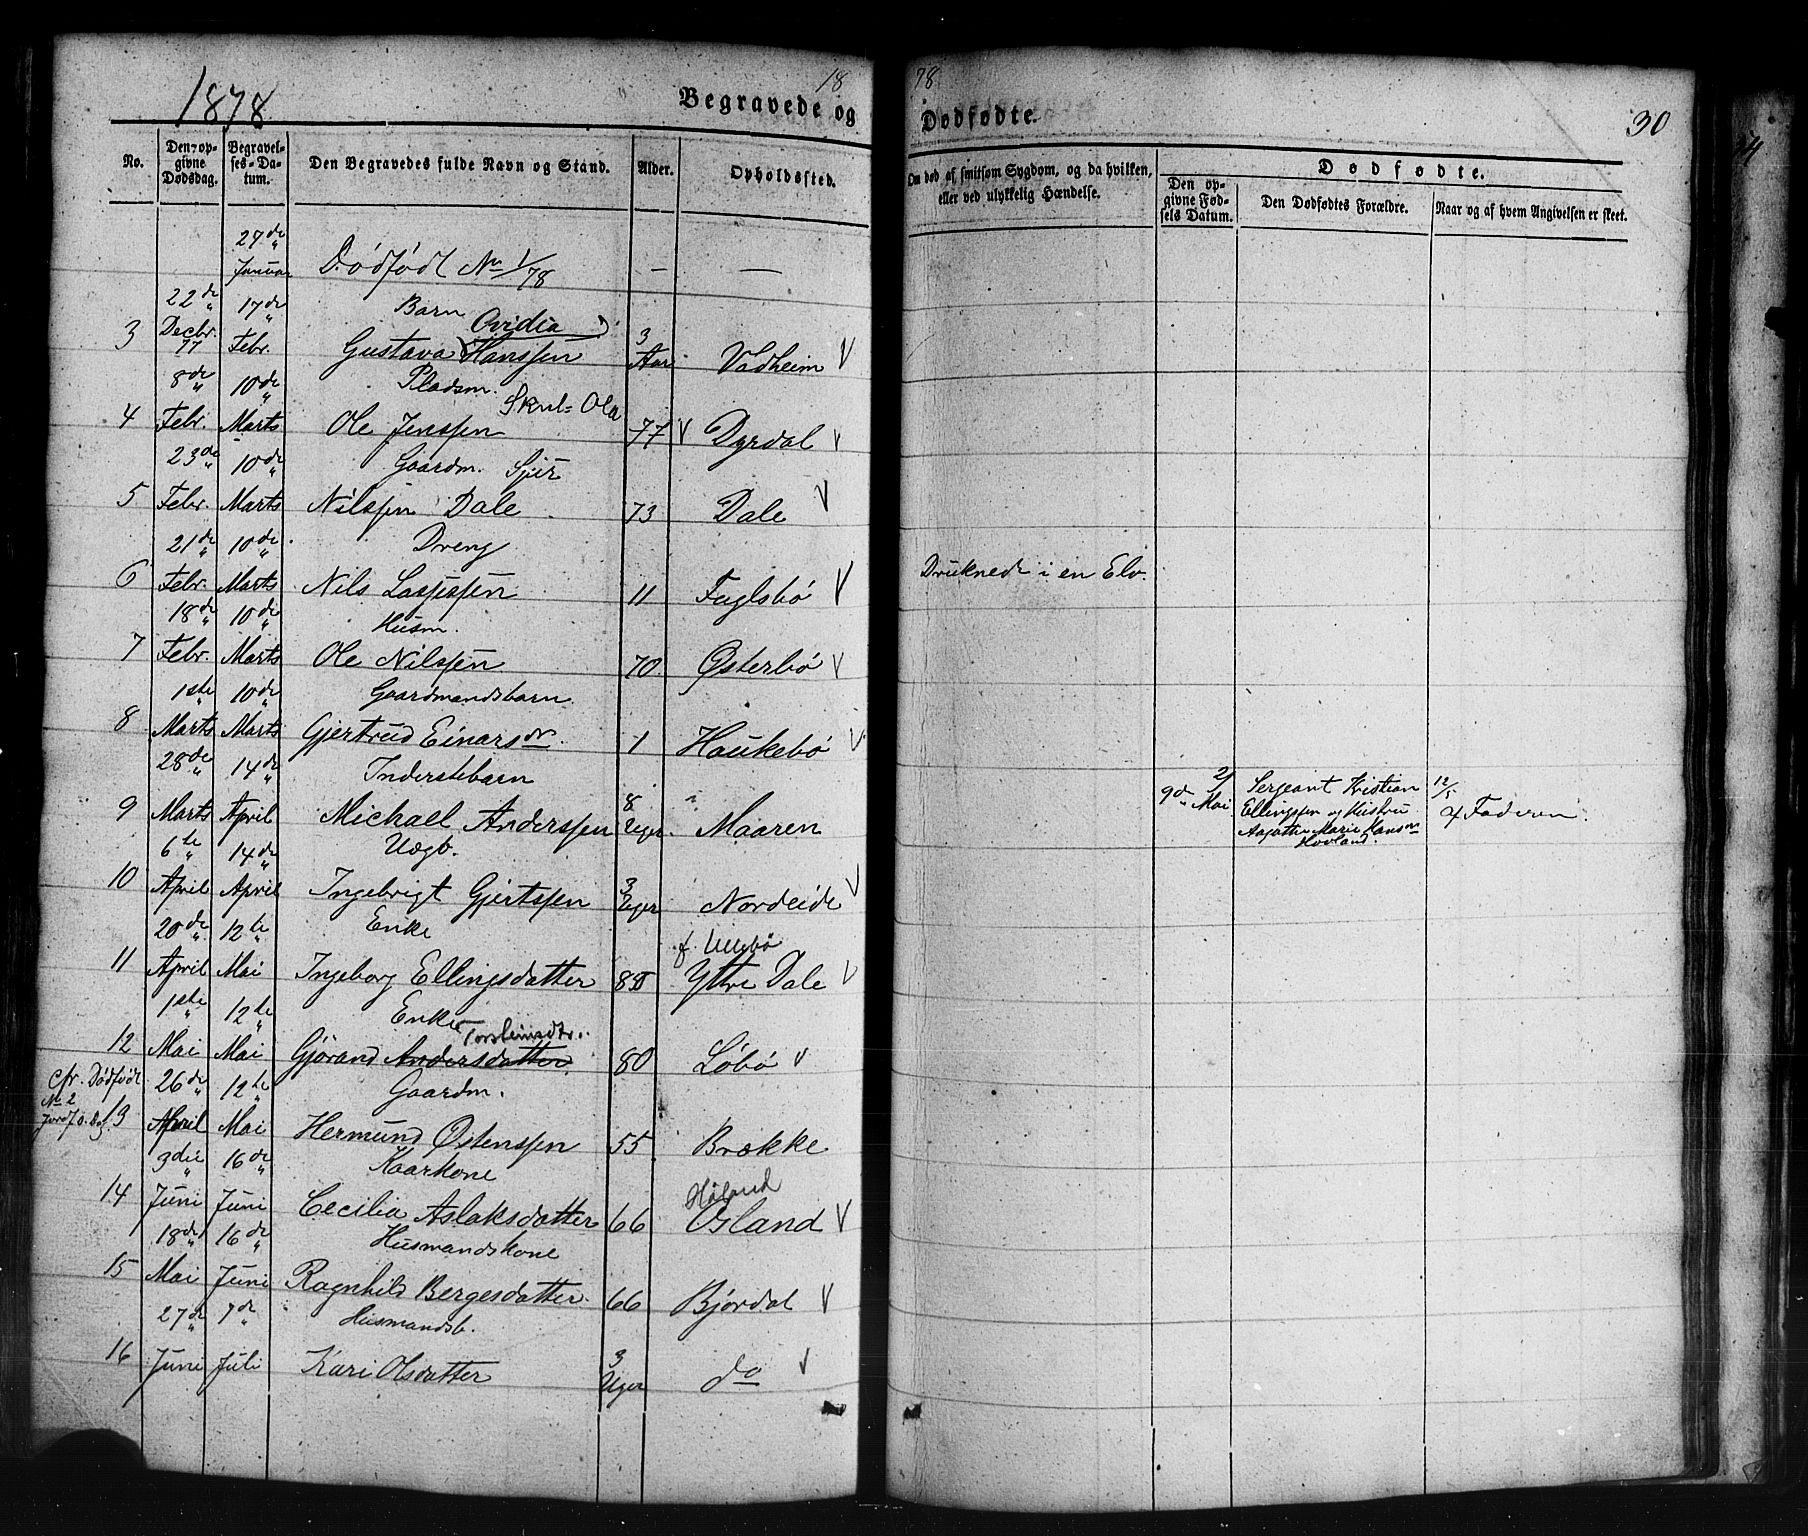 1878
18
Begravede og
No.
Den opgivne Dødsdag.
Begravelses-Datum.
Den Begravedes fulde Navn og Stand.
Alder.
Opholdssted.
27de Januar Dødfødt No 1/78 — —
22de 17de Barn Ovidia
3 Decbr. 77 Febr. Gustava Hanssen 3 Aar Vadheim V
8de 10de Pladsm. Skul-Ola
4 Febr. Marts Ole Jenssen 77 V Dyrdal V
23de 10de Gaardm. Sjur
5 Febr. Marts Nilssen Dale 73 Dale V
21de 10de Dreng
6 Febr. Marts Nils Lassessen 11 Fuglsbø V
18de 10de Husm.
7 Febr. Marts Ole Nilssen 70 Østerbø V
1ste 10de Gaardmandsbarn
8 Marts Marts Gjertrud Einarsdr. 1 Haukebø V
28de 14de Inderstebarn
9 Marts April Michael Anderssen 8 Uger. Maaren
6te 14de Uægb.
10 April April Ingebrigt Gjertssen 3 Uger Nordeide V
20de 12te Enke f. Lillebø
11 April Mai Ingeborg Ellingsdatter 85 Ytre Dale V
1ste 12te Enke Torsteinsdtr.
12 Mai Mai Gjørand Andersdatter 80 Løbø V
cfr. Dødfødt No 2
26de 12te Gaardm.
13 April Mai Hermund Østenssen 55 Brække
3die 16de Kaarkone Høland
14 Juni Juni Cecilia Aslaksdatter 66 Osland V
18de 16de Husmandskone
15 Mai Juni Ragnhild Bergesdatter 66 Bjordal V
27de 7de Husmandsb.
16 Juni Juli Kari Olsdatter 3 Uger do V
78
Dødfødte.
30
Om død af smitsom Sygdom, og da hvilken, eller ved ulykkelig Hændelse.
Dødfødte.
Den opgivne Fødsels Datum.
Den Dødfødtes Forældre.
Naar og af hvem Angivelsen er skeet.
Druknede i en Elv.
2/ 9de Mai
Sergeant Kristian
Ellingssen og Hustru
Aagathe Marie Hansdr
Hovland.
12/5 af Faderen